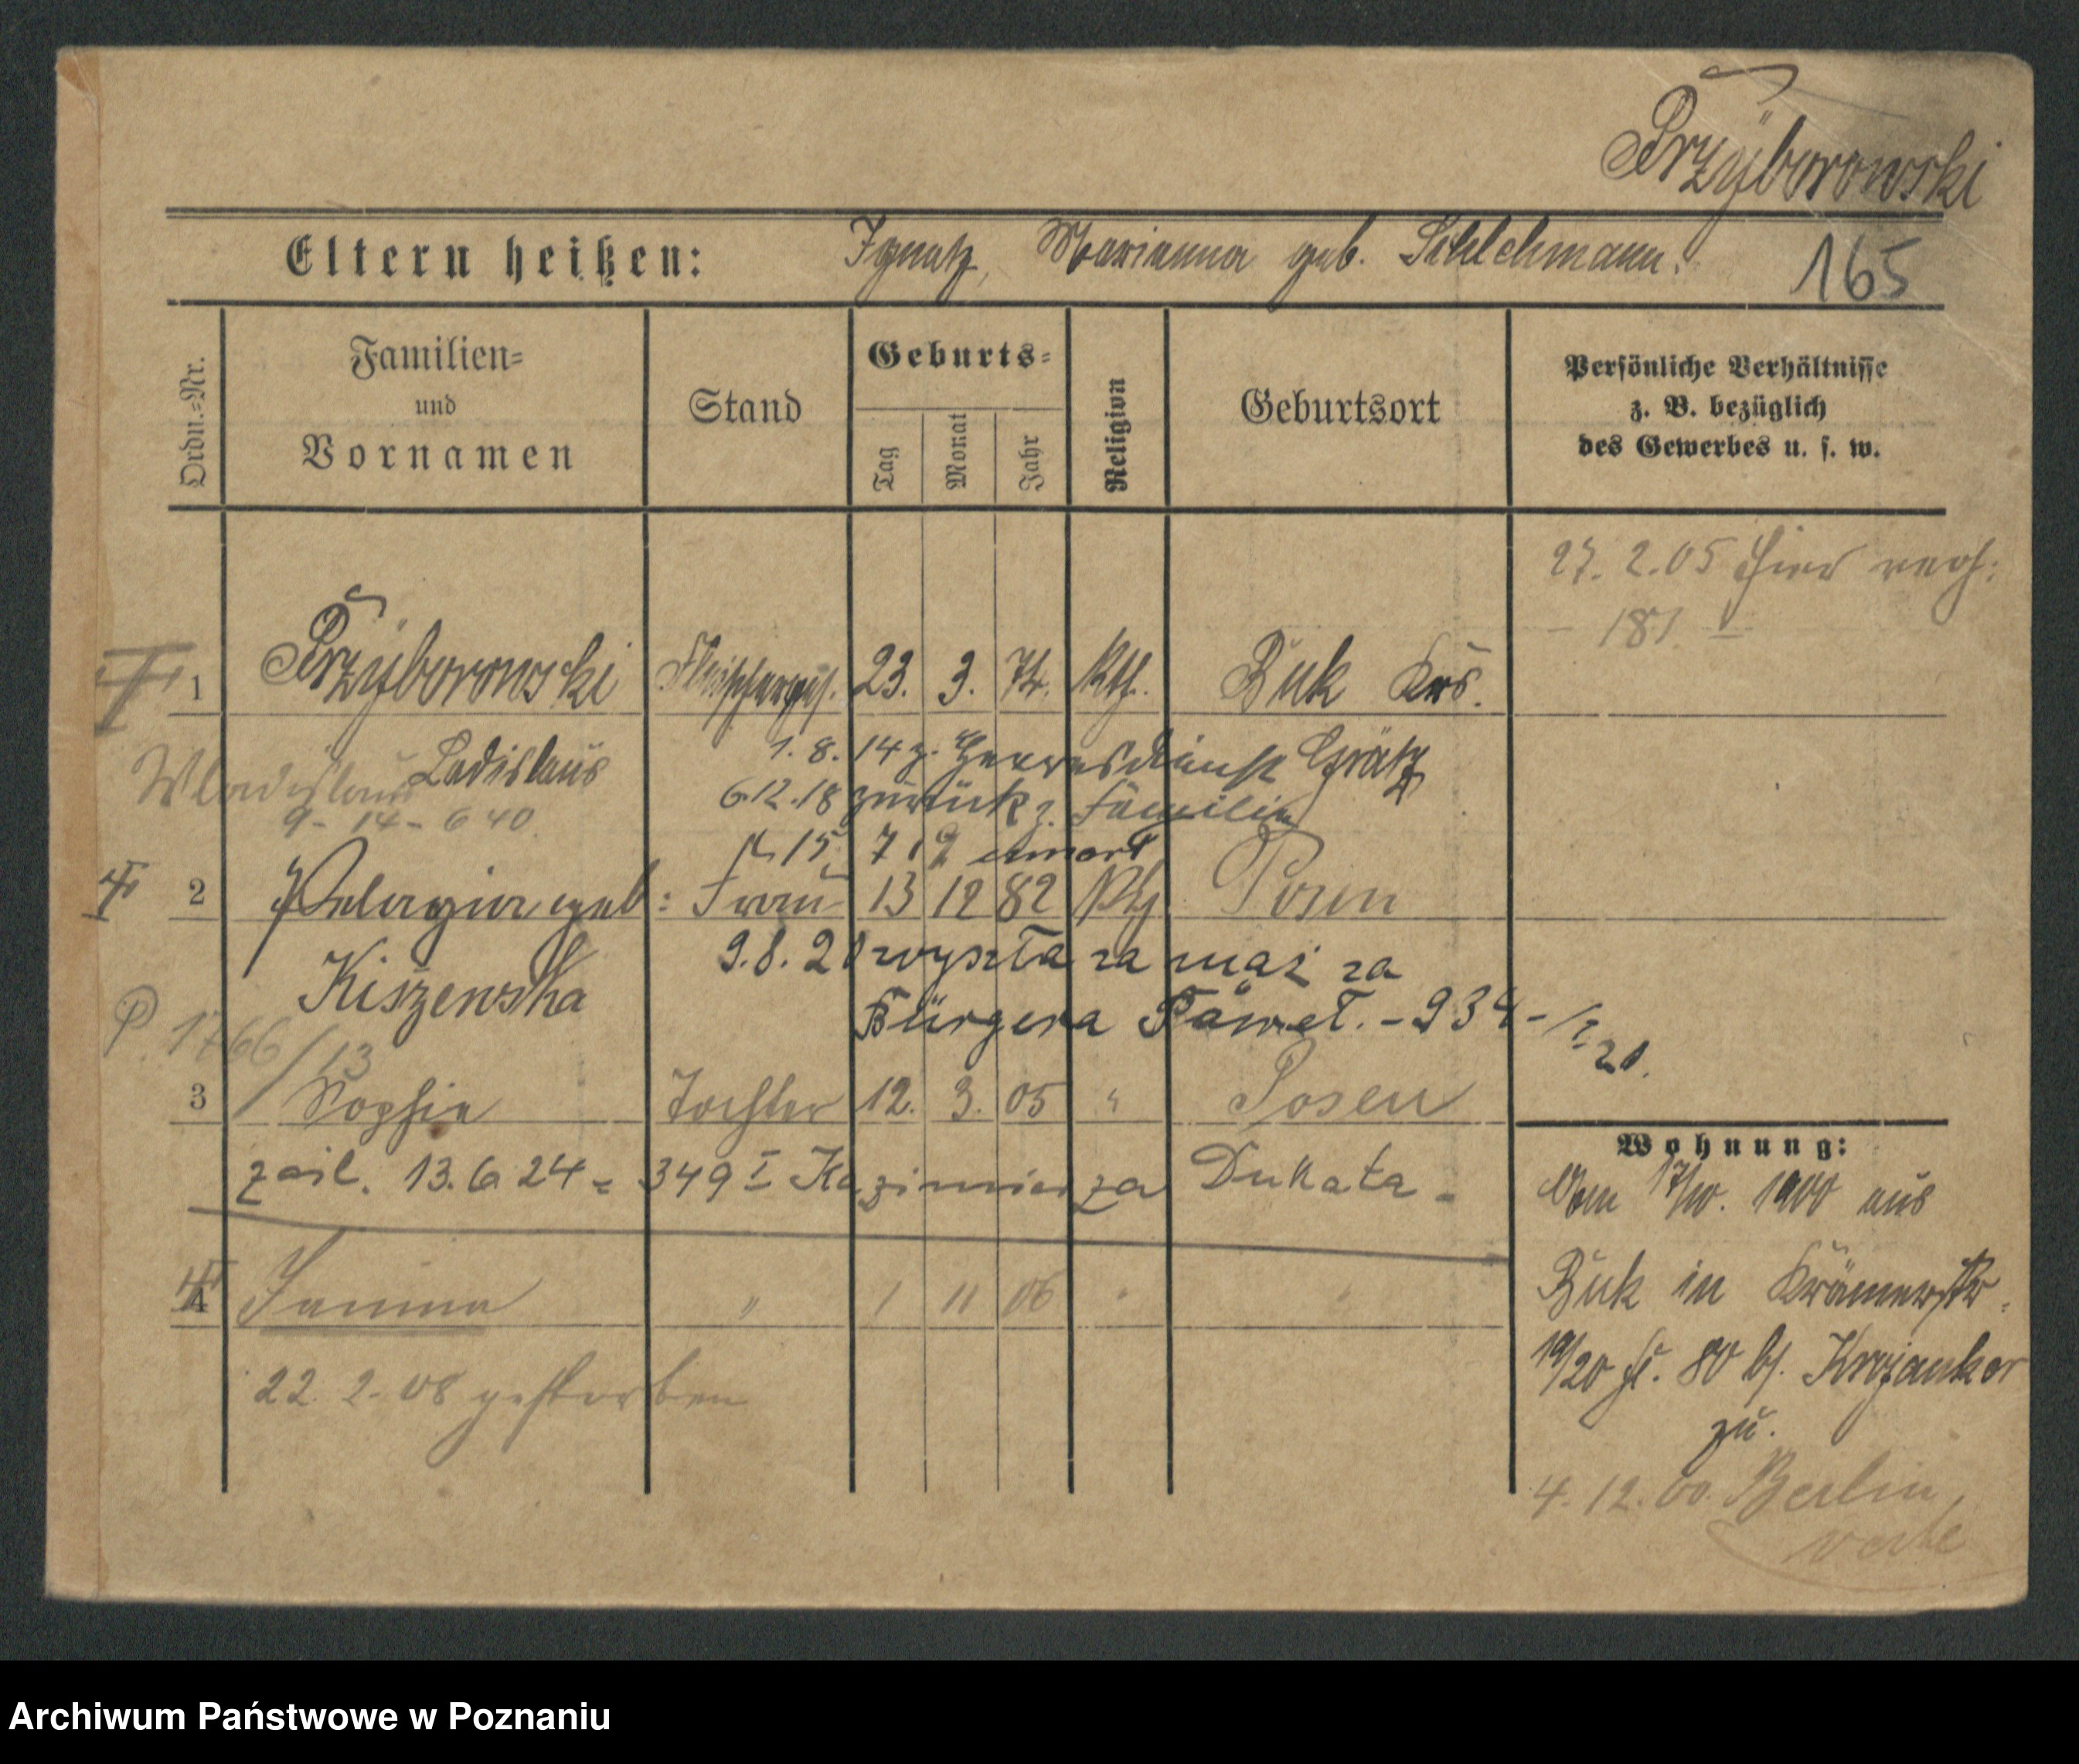 Przyborowski
Eltern heißen: Ignatz, Marianna geb. Schlehmann.
165
Ordn.-Nr.
Familien- und Vornamen
Stand
Geburts-
Tag
Monat
Jahr
Religion
Geburtsort
Persönliche Verhältnisse
z. B. bezüglich
des Gewerbes u. s. w.
27. 2. 05 hier
181
1 Przyborowski Fleischerges. 23. 3. 74. Kth. Buk Krs.
Wladislaus Ladislaus 1. 8. 14 z. Heeresdienst Grätz
9 - 14 - 640. 6.12.18 zurück z. Familie
15. 7. 19 umarł
2 Pelagia geb: Frau 13 12 82 Kth Posen
Kiszewska 9.8.20 wyszła za mąż za
Bürgera Paweł. - 934 - / I 20.
P. 1766/13
3 Sophie Tochter 12. 3. 05 " Posen
zail. 13.6 24 = 349 I Kazimierza Dukata -
4 Janina " 1 11 06 " "
22. 2. 08 gestorben
Wohnung:
Vom 17/10. 1900 aus
Buk in Krämerstr.
19/20 fr. 80 bf. Krojanker
zu.
4. 12. 00. Berlin,
verte
Archiwum Państwowe w Poznaniu